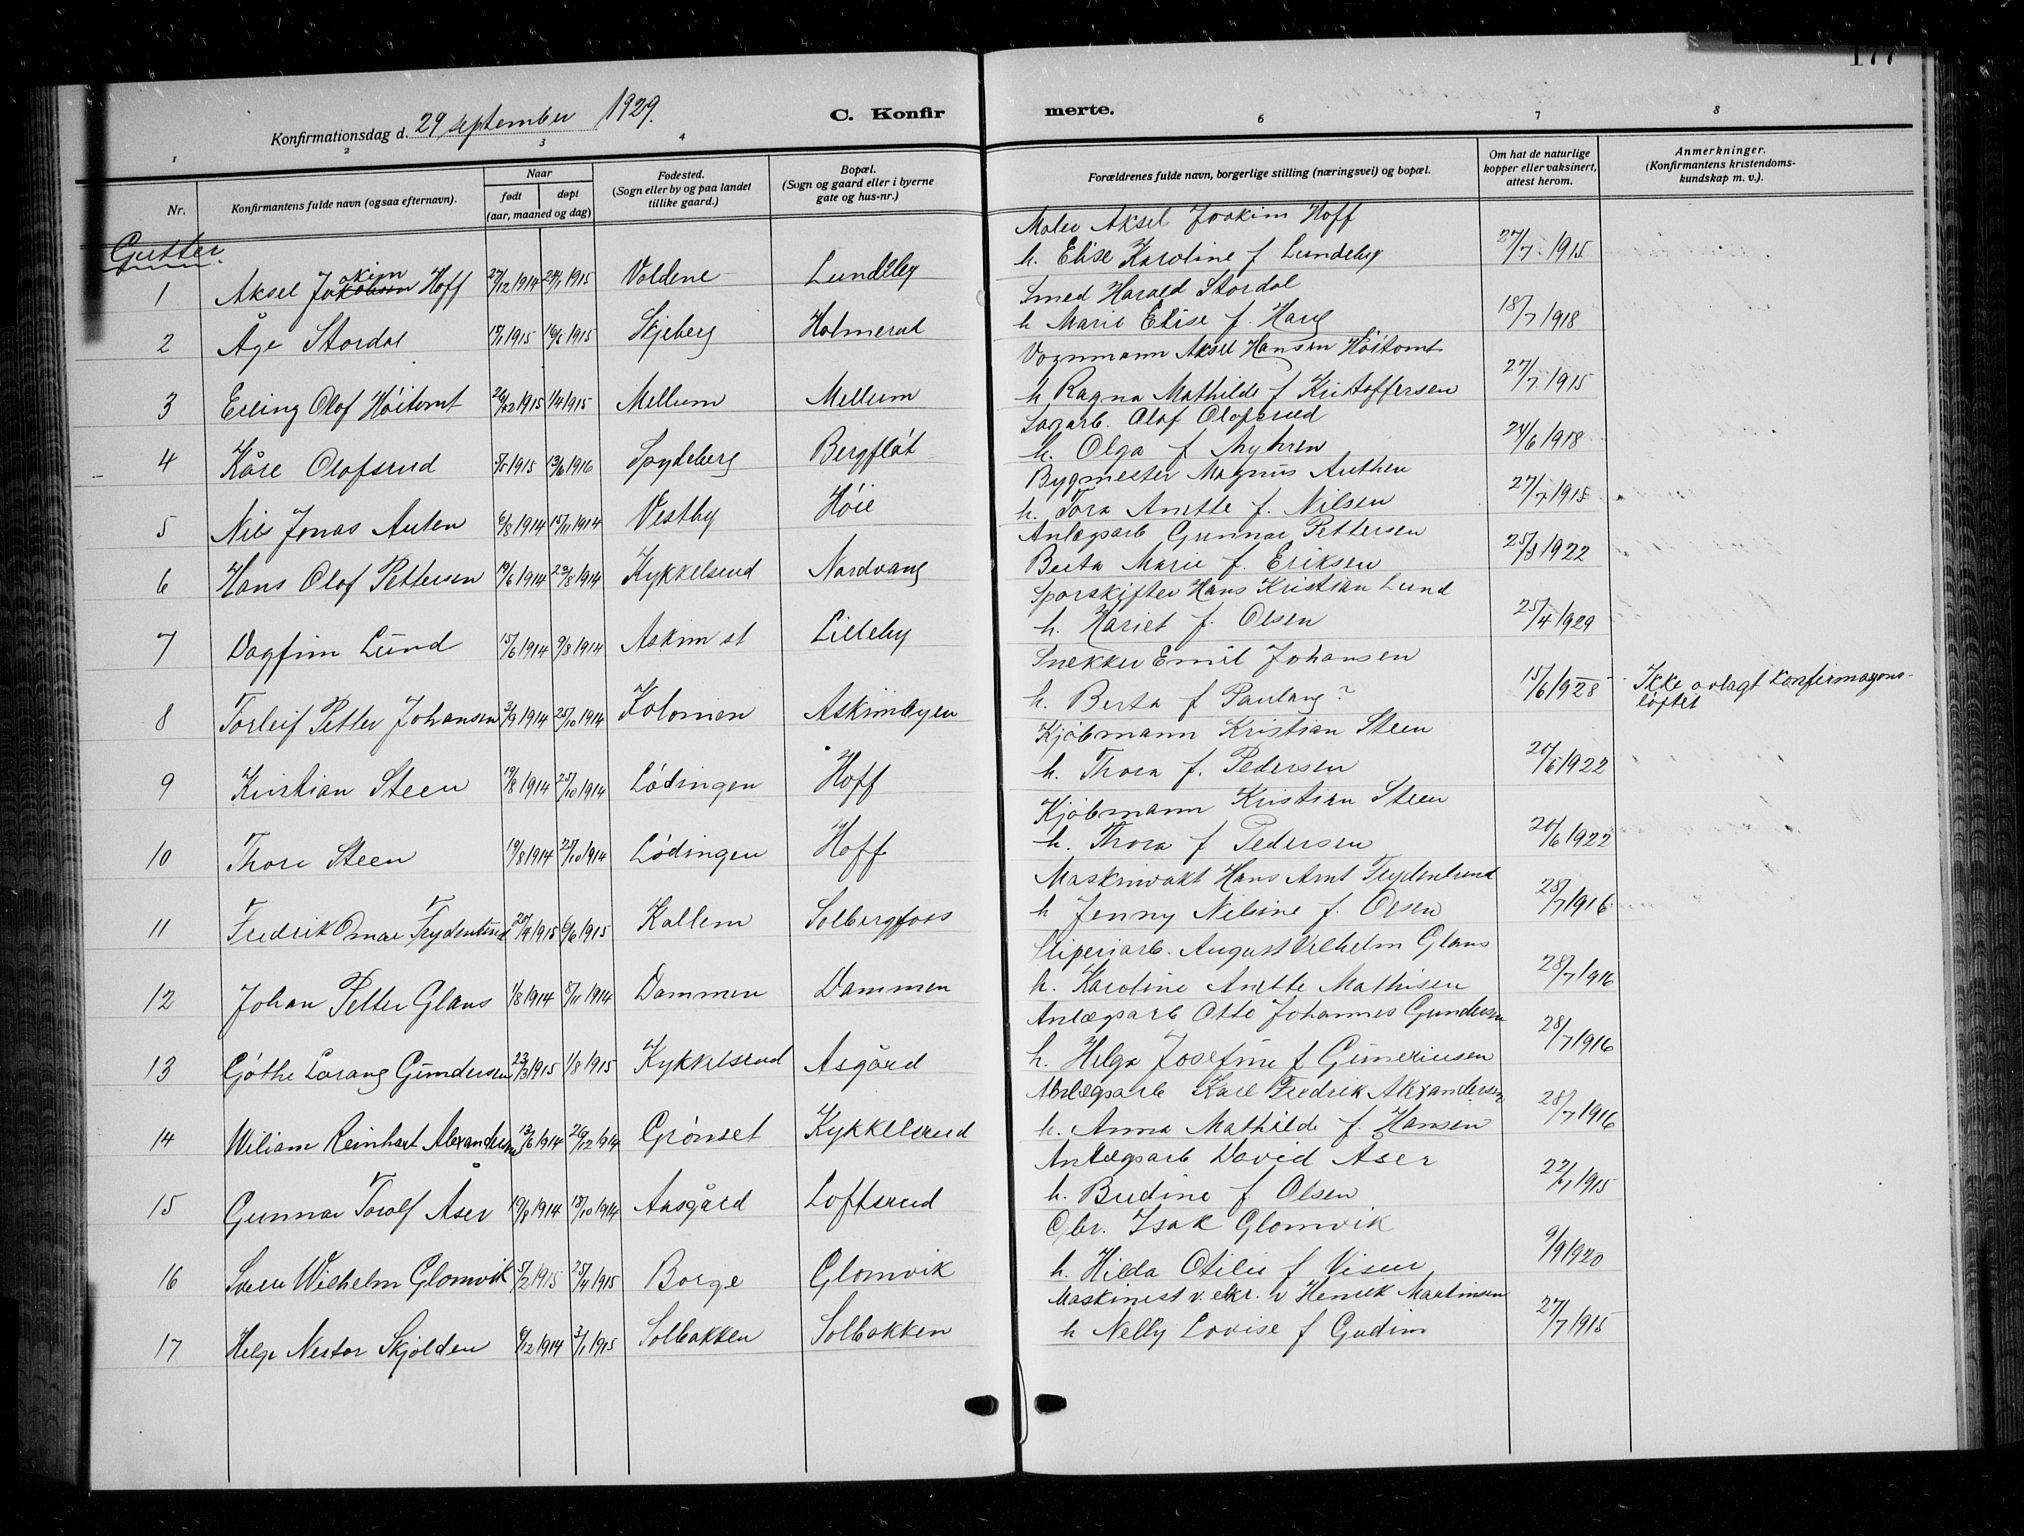 177
Konfirmationsdag d. 29 september 1929.
C. Konfirmerte.
1 2 3 4 6 7 8
Nr.
Konfirmantens fulde navn (ogsaa efternavn).
Naar
født
døpt
(aar, maaned og dag)
Fødested.
(Sogn eller by og paa landet
tillike gaard.)
Bopæl.
(Sogn og gaard eller i byerne
gate og hus-nr.)
Forældrenes fulde navn, borgerlige stilling (næringsvei) og bopæl.
Om hat de naturlige
kopper eller vaksinert,
attest herom.
Anmerkninger.
(Konfirmantens kristendoms-
kundskap m. v.).
Gutter
Maler Aksel Joakim Hoff
1 Aksel Joakim Hoff 27/12 1914 24/1 1915 Voldene Lundeby h. Elise Karoline f Lundeby 27/7 1915
Smed Harald Stordal
2 Åge Stordal 1915 1915 Skjeberg Holmerud h Marie Elise f. Haug 18/7 1918
Vognmann Aksel Hansen Høitomt
3 Erling Olaf Høitomt 1915 1/4 1915 Mellum Mellum h Ragna Mathilde f Kristoffersen 27/7 1915
Sagarb. Olaf Olafsrud
4 Kåre Olafsrud 1915 13/6 1916 Spydeberg Bergfløt h. Olga f Myhren 24/6 1918
Bygmester Magnus Authen
5 Nils Jonas Auten 6/8 1914 15/11 1914 Vestby Høie h. Tora Anette f. Nilsen 27/7 1915
Anlægsarb Gunnar Pettersen
6 Hans Olaf Pettersen 19/6 1914 23/8 1914 Kykkelsrud Nordvang Berta Marie f. Eriksen 25/8 1922
Sporskifter Hans Kristian Lund
7 Dagfinn Lund 15/6 1914 9/8 1914 Askim st Lilleby h. Hariet f. Olsen 25/4 1929
Snekker Emil Johansen
8 Torleif Petter Johansen 3/9 1914 25/10 1914 Kolonien Askimbyen h. Berta f Paulang? 15/6 1928 Ikke avlagt konfirmasjons-
løftet
Kjøbmann Kristian Steen
9 Kristian Steen 19/8 1914 25/10 1914 Lødingen Hoff h. Thora f. Pedersen 20/6 1922
Kjøbmann Kristian Steen
10 Thore Steen 19/8 1914 25/10 1914 Lødingen Hoff h. Thora f Pedersen 20/6 1922
Maskinvakt Hans Arnt Frydenlund
11 Fredrik Omar Frydenlund 20/4 1915 6/6 1915 Kallem Solbergfoss h Jenny Nilsine f. Olsen 28/7 1916
Sliperiarb. August Vilhelm Glans
12 Johan Petter Glans 1/8 1914 8/11 1914 Dammen Dammen h. Karoline Anette Mathisen 28/7 1916
Anlægsarb Otto Johannes Gundersen
13 Gøthe Lorang Gundersen 23/3 1915 1/8 1915 Kykkelsrud Asgård h. Helga Josefine f Gunneriusen 28/7 1916
Anlægsarb Karl Fredrik Alexandersen
14 Wiliam Reinhart Alexandersen 13/6 1914 26/12 1914 Grønset Kykkelsrud h. Anna Mathilde f. Hansen 28/7 1916
Anlægsarb David Åser
15 Gunnar Torolf Åser 19/8 1914 18/10 1914 Aasgård Loftsrud h. Budine f. Olsen 22/1 1915
Gbr. Isak Glomvik
16 Sverre Wilhelm Glomvik 5/2 1915 25/4 1915 Borge Glomvik h. Hilda Otilie f Visur 9/9 1920
Maskinist v. elkr. v Henrik Martinsen
17 Helge Nestor Skjolden 6/12 1914 3/1 1915 Solbakken Solbakken h Nelly Lovise f Gudim 27/7 1915